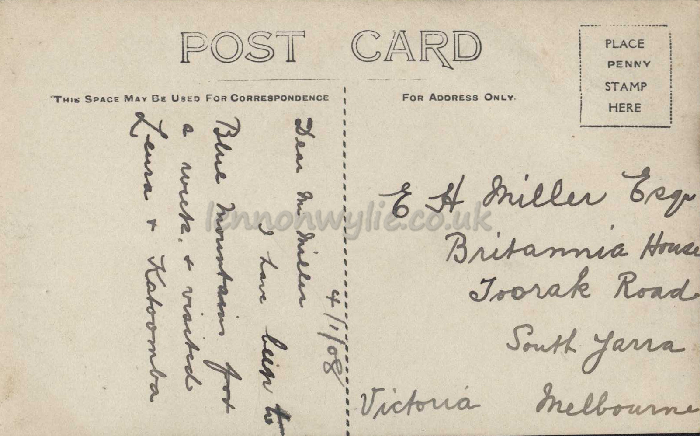 POST CARD
PLACE
PENNY
STAMP
HERE
"THIS SPACE MAY BE USED FOR CORRESPONDENCE
FOR ADDRESS ONLY.
4/1/08
Dear Mr Miller
I have been to
Blue Mountains for
a week, & visited
Leura & Katoomba
E H Miller Esqr
Britannia House
Toorak Road
South Yarra
Victoria Melbourne
lennonwylie.co.uk